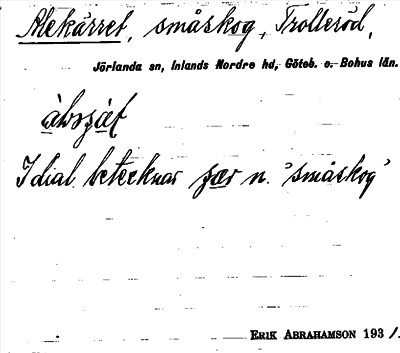 Alekärret, småskog, Trolleröd,
Jörlanda sn, Inlands Nordre hd, Göteb. o. Bohus län.
I dial. betecknar n. 'småskog'
ERIK ABRAHAMSON 1931.